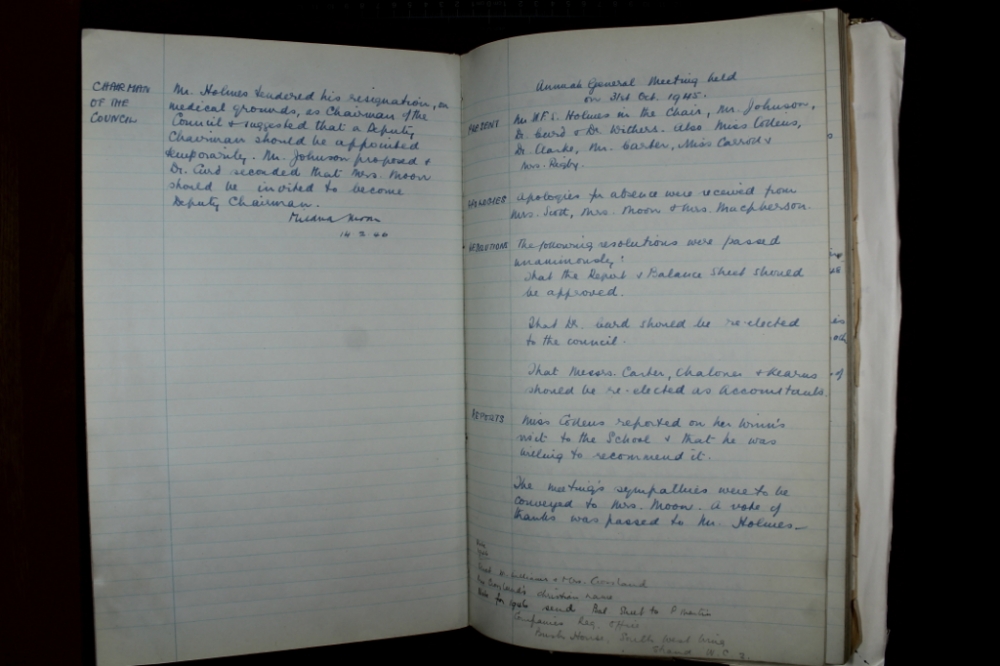 CHAIRMAN
OF THE
COUNCIL
Mr. Holmes tendered his resignation, on
medical grounds, as Chairman of the
Council & suggested that a Deputy
Chairman should be appointed
temporarily. Mr. Johnson proposed &
Dr. Curd seconded that Mrs. Moon
should be invited to become
Deputy Chairman.
Moon
14.2.46
Annual General Meeting held
on 31st Oct. 1945.
PRESENT
Mr H F S. Holmes in the Chair, Mr. Johnson,
Dr. Curd & Dr. Withers. Also Miss Codens,
Dr. Clarke, Mr. Carter, Miss Carrod &
Mrs. Rigby.
APOLOGIES
Apologies for absence were received from
Mrs. Scott, Mrs. Moon & Mrs. Macpherson.
RESOLUTIONS
The following resolutions were passed
unanimously:
That the Report & Balance Sheet should
be approved.
That Dr. Curd should be re-elected
to the council.
That Messrs. Carter, Chaloner & Kearns
should be re-elected as Accountants.
REPORTS
Miss Codens reported on her
visit to the School & that he was
willing to recommend it.
The meeting's sympathies were to be
conveyed to Mrs. Moon. A vote of
thanks was passed to Mr. Holmes.
& Mrs.
christian name
for send Bal Sheet to P Martin
Companies Reg. Office
Bush House, South West Wing
Strand W.C.2.